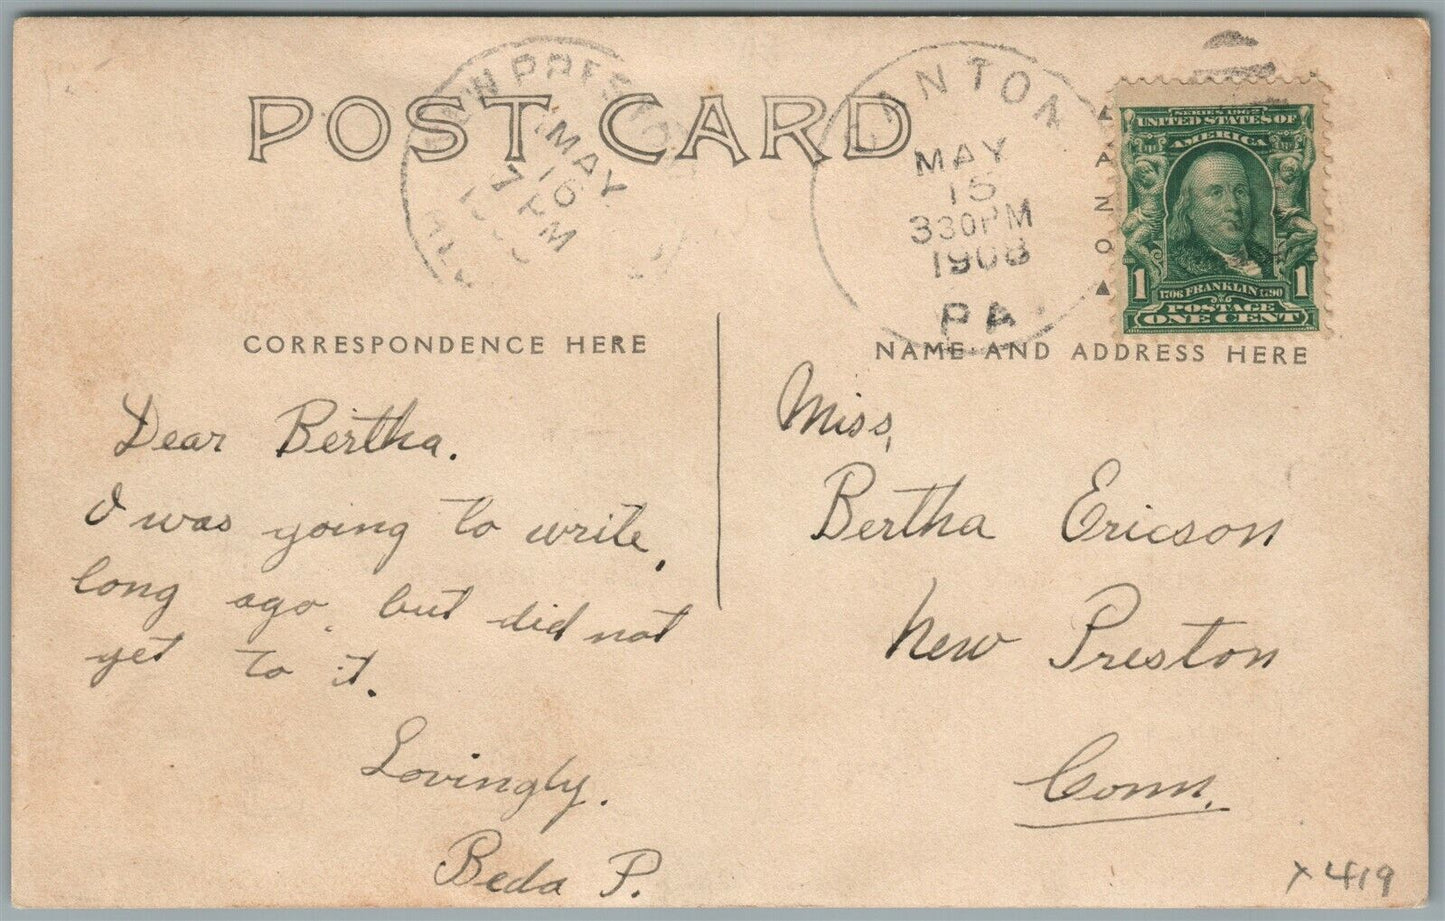 POST CARD
NEW PRESTON
MAY
16
7 PM
CANTON
MAY
15
330PM
1908
PA.
SERIES 1902
UNITED STATES OF
AMERICA
1 1
1706 FRANKLIN 1790
POSTAGE
ONE CENT
AZO
CORRESPONDENCE HERE
NAME AND ADDRESS HERE
Dear Bertha.
I was going to write,
long ago, but did not
yet to it.
Lovingly.
Beda P.
Miss,
Bertha Ericson
New Preston
Conn.
x419